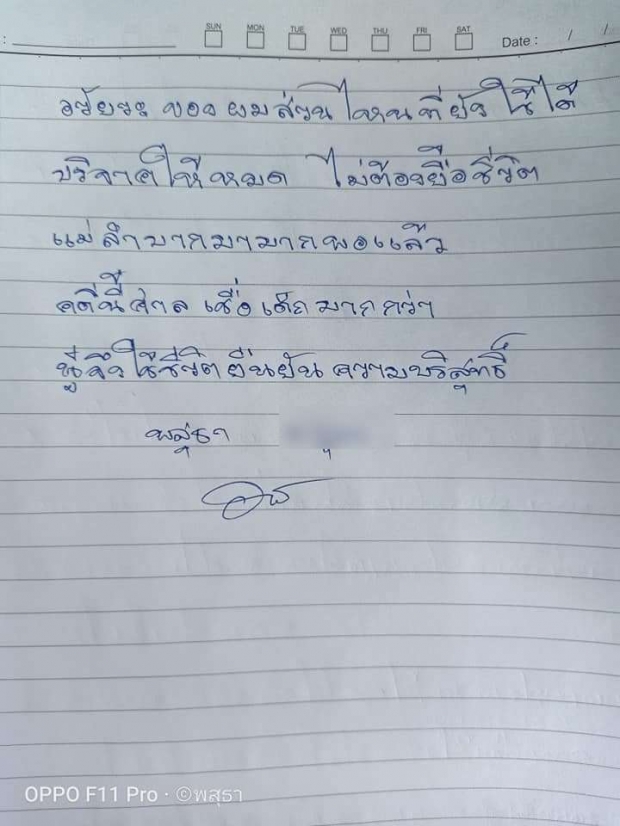 SUN MON TUE WED THU FRI SAT
Date : / /
อวัยวะ ของ ผม ส่วนไหน ที่ ยัง ใช้ได้
บริจาคให้หมด ไม่ต้องยื้อชีวิต
แม่ลำบากมามากพอแล้ว
คดีนี้ศาล เชื่อเด็กมากกว่า
ผู้จึงใช้ชีวิตยืนยันความบริสุทธิ์
พสุธา
OPPO F11 Pro · ©พสุธา